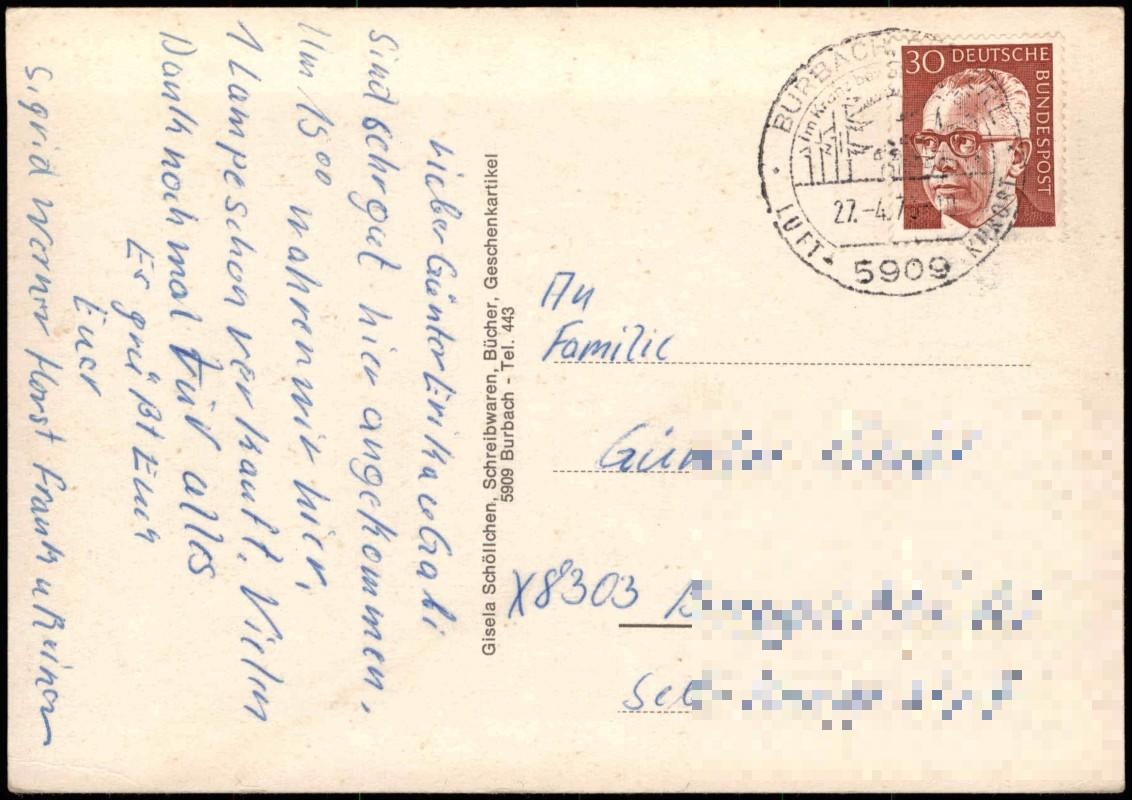 Lieber Günter Erika u Gabi
Sind sehr gut hier angekommen,
Um 15 00 wahren wir hier,
1 Lampe schon verkauft. Vielen
Dank noch mal für alles
Es grüßt Euch
Euer
Sigrid Werner Horst Frank u Reiner
Gisela Schöllchen, Schreibwaren, Bücher, Geschenkartikel
5909 Burbach - Tel. 443
30 DEUTSCHE
BUNDESPOST
BURBACH
Im
27.-4.7
LUFT-
KURORT
5909
An
Familie
X8303